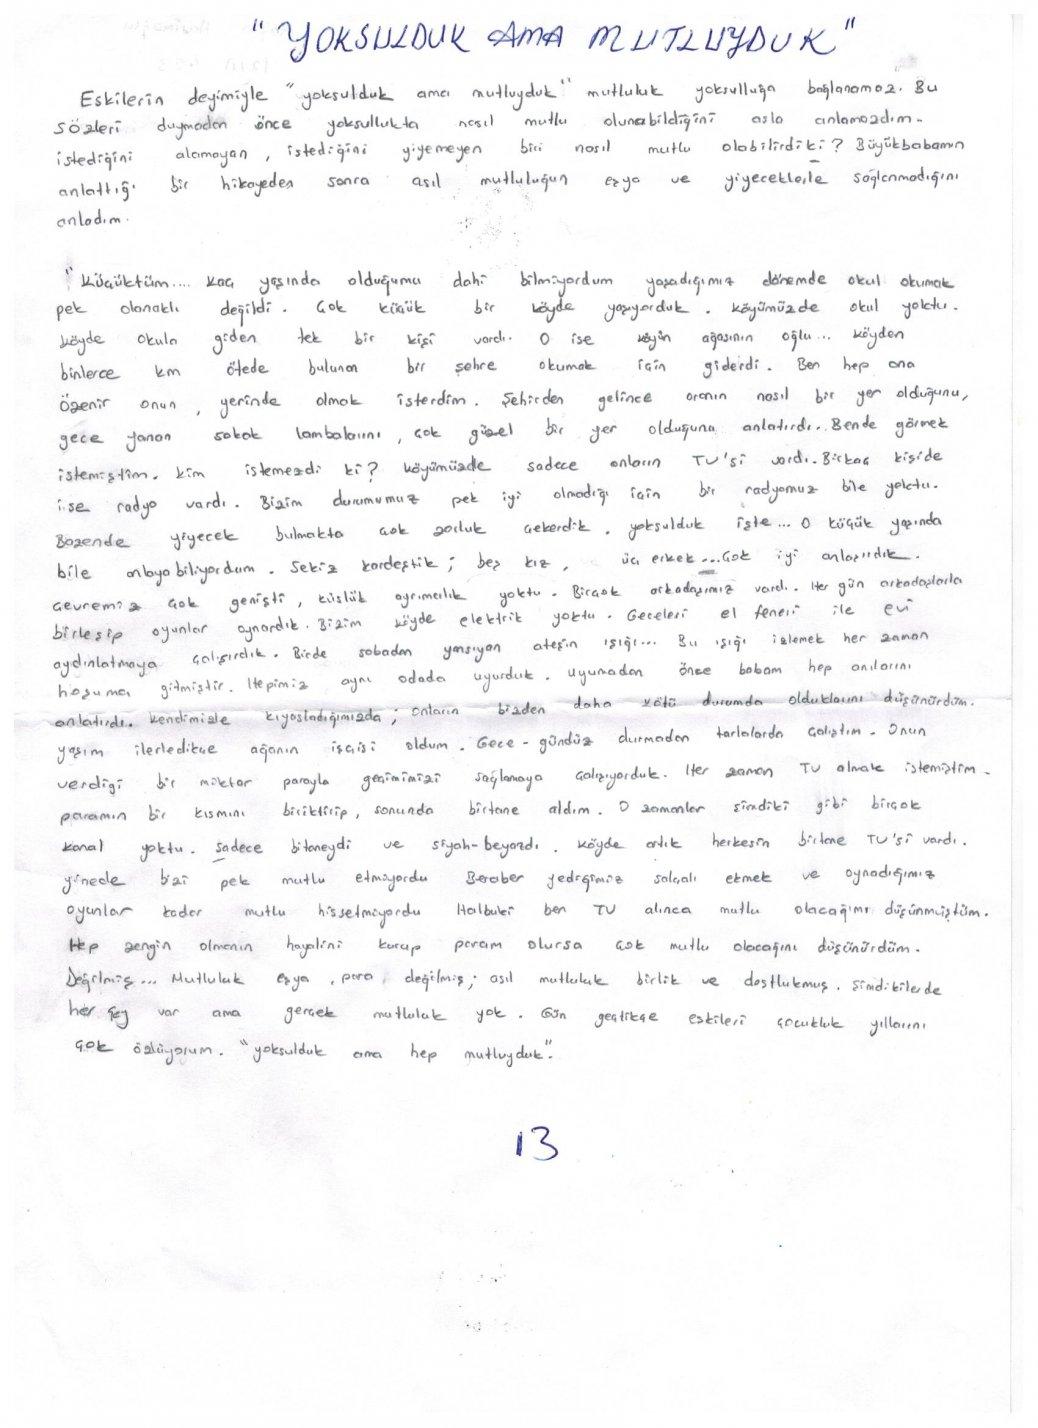 "YOKSULDUK AMA MUTLUYDUK"
Eskilerin deyimiyle "yoksulduk ama mutluyduk" mutluluk yoksulluğa bağlanamaz. Bu
sözleri duymadan önce yoksullukta nasıl mutlu olunabildiğini asla anlamazdım.
istediğini alamayan, istediğini yiyemeyen biri nasıl mutlu olabilirdi ki? Büyükbabamın
anlattığı bir hikayeden sonra asıl mutluluğun eşya ve yiyeceklerle sağlanmadığını
anladım.
"Küçüktüm.... Kaç yaşında olduğumu dahi bilmiyordum yaşadığımız dönemde okul okumak
pek olanaklı değildi. Çok küçük bir köyde yaşıyorduk. Köyümüzde okul yoktu.
Köyde okula giden tek bir kişi vardı. O ise köyün ağasının oğlu... köyden
binlerce km ötede bulunan bir şehre okumak için giderdi. Ben hep ona
özenir onun, yerinde olmak isterdim. Şehirden gelince oranın nasıl bir yer olduğunu,
gece yanan sokak lambalarını, çok güzel bir yer olduğunu anlatırdı.. Bende görmek
istemiştim. Kim istemezdi ki? Köyümüzde sadece onların TV'si vardı. Birkaç kişide
ise radyo vardı. Bizim durumumuz pek iyi olmadığı için bir radyomuz bile yoktu.
Bazende yiyecek bulmakta çok zorluk çekerdik. yoksulduk işte... O küçük yaşımda
bile anlayabiliyordum. Sekiz kardeştik; beş kız, üç erkek... Çok iyi anlaşırdık.
Çevremiz çok genişti, küslük ayrımcılık yoktu. Birçok arkadaşımız vardı. Her gün arkadaşlarla
birleşip oyunlar oynardık. Bizim köyde elektrik yoktu. Geceleri el feneri ile evi
aydınlatmaya çalışırdık. Birde sobadan yansıyan ateşin ışığı... Bu ışığı izlemek her zaman
hoşuma gitmiştir. Hepimiz aynı odada uyurduk. Uyumadan önce babam hep anılarını
anlatırdı. Kendimizle kıyasladığımızda; onların bizden daha kötü durumda olduklarını düşünürdüm.
yaşım ilerledikçe ağanın işçisi oldum. Gece - gündüz durmadan tarlalarda çalıştım. Onun
verdiği bir miktar parayla geçimimizi sağlamaya çalışıyorduk. Her zaman TV almak istemiştim.
paramın bir kısmını biriktirip, sonunda birtane aldım. O zamanlar şimdiki gibi birçok
kanal yoktu. Sadece bitaneydi ve siyah-beyazdı. Köyde artık herkesin birtane TV'si vardı.
yinede bizi pek mutlu etmiyordu Beraber yediğimiz salçalı ekmek ve oynadığımız
oyunlar kadar mutlu hissetmiyordu Halbuki ben TV alınca mutlu olacağımı düşünmüştüm.
Hep zengin olmanın hayalini kurup param olursa çok mutlu olacağını düşünürdüm.
Değilmiş... Mutluluk eşya, para, değilmiş; asıl mutluluk birlik ve dostlukmuş. Şimdikilerde
her şey var ama gerçek mutluluk yok. Gün geçtikçe eskileri çocukluk yıllarını
çok özlüyorum. "yoksulduk ama hep mutluyduk".
13